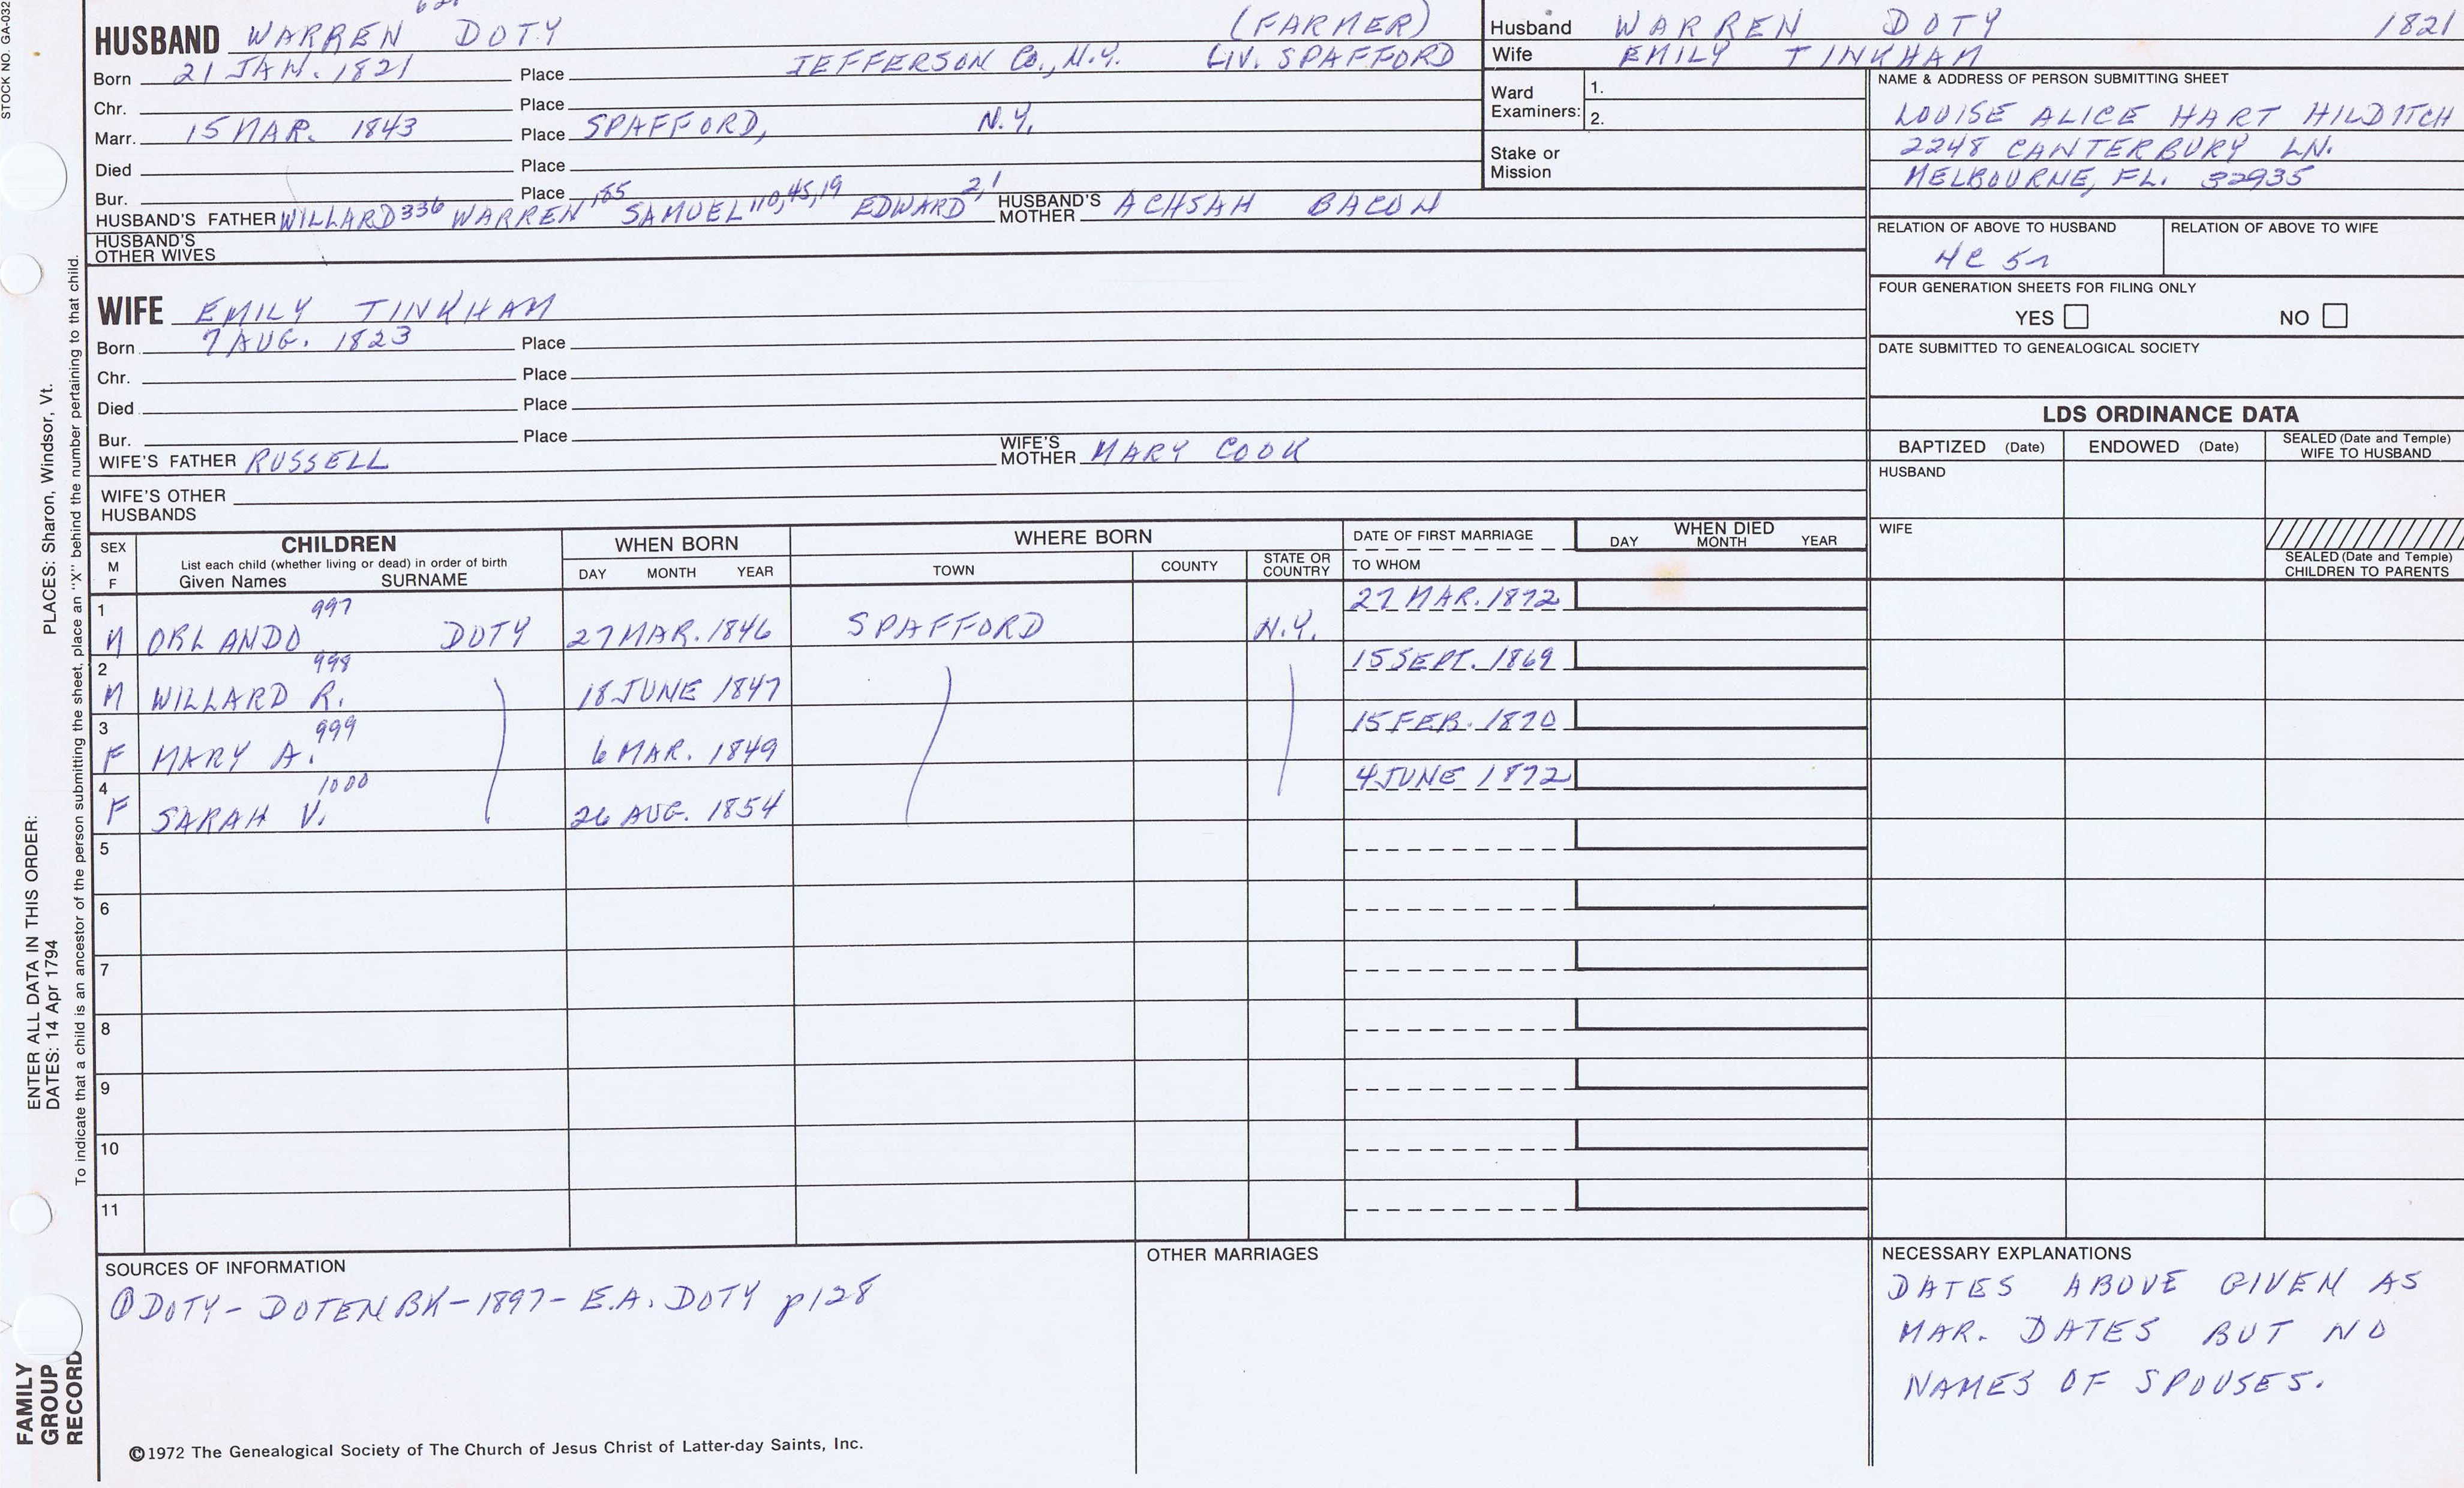 STOCK NO. GA-032
HUSBAND WARREN DOTY (FARMER)
Born 21 JAN. 1821 Place JEFFERSON Co., N.Y. LIV. SPAFFORD
Chr. Place
Marr. 15 MAR. 1843 Place SPAFFORD, N.Y.
Died Place
Bur. Place
HUSBAND'S FATHER WILLARD 336 WARREN 185 SAMUEL 110,45,19 EDWARD 2,1 HUSBAND'S MOTHER ACHSAH BACON
HUSBAND'S OTHER WIVES
WIFE EMILY TINKHAM
Born 7 AUG. 1823 Place
Chr. Place
Died Place
Bur. Place
WIFE'S FATHER RUSSELL WIFE'S MOTHER MARY COOK
WIFE'S OTHER HUSBANDS
Husband WARREN DOTY 1821
Wife EMILY TINKHAM
Ward Examiners: 1.
2.
Stake or Mission
NAME & ADDRESS OF PERSON SUBMITTING SHEET
LOUISE ALICE HART HILDITCH
2248 CANTERBURY LN.
MELBOURNE, FL. 32935
RELATION OF ABOVE TO HUSBAND RELATION OF ABOVE TO WIFE
4C 5r
FOUR GENERATION SHEETS FOR FILING ONLY
YES NO
DATE SUBMITTED TO GENEALOGICAL SOCIETY
LDS ORDINANCE DATA
BAPTIZED (Date) ENDOWED (Date) SEALED (Date and Temple) WIFE TO HUSBAND
HUSBAND
WIFE
SEALED (Date and Temple) CHILDREN TO PARENTS
SEX M F CHILDREN
List each child (whether living or dead) in order of birth
Given Names SURNAME
WHEN BORN
DAY MONTH YEAR
WHERE BORN
TOWN COUNTY STATE OR COUNTRY
DATE OF FIRST MARRIAGE
TO WHOM
WHEN DIED
DAY MONTH YEAR
1 M ORLANDO 997 DOTY 27 MAR. 1846 SPAFFORD N.Y. 27 MAR. 1872
2 M WILLARD R. 998 18 JUNE 1847 15 SEPT. 1869
3 F MARY A. 999 6 MAR. 1849 15 FEB. 1870
4 F SARAH V. 1000 26 AUG. 1854 4 JUNE 1872
5
6
7
8
9
10
11
SOURCES OF INFORMATION
① DOTY - DOTEN BK - 1897 - E.A. DOTY p128
OTHER MARRIAGES
NECESSARY EXPLANATIONS
DATES ABOVE GIVEN AS
MAR. DATES BUT NO
NAMES OF SPOUSES.
©1972 The Genealogical Society of The Church of Jesus Christ of Latter-day Saints, Inc.
FAMILY GROUP RECORD
ENTER ALL DATA IN THIS ORDER:
DATES: 14 Apr 1794 PLACES: Sharon, Windsor, Vt.
To indicate that a child is an ancestor of the person submitting the sheet, place an "X" behind the number pertaining to that child.